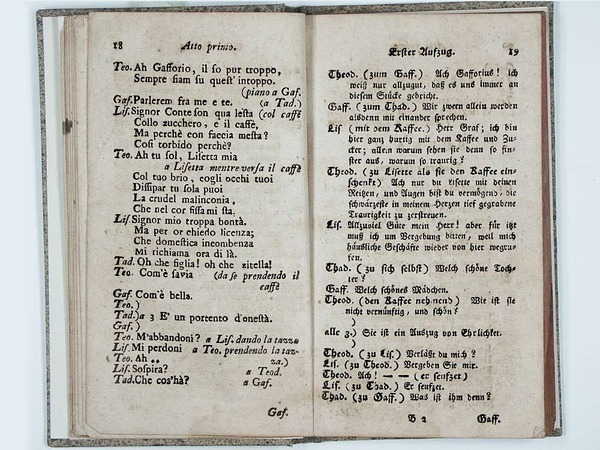 18 Atto primo.
Teo. Ah Gafforio, il so pur troppo,
Sempre siam su quest' intoppo.
(piano a Gaf.
Gaf. Parlerem fra me e te. (a Tad.)
Lis. Signor Conte son qua lesta (col caffè
Collo zucchero, e il caffè,
Ma perchè con faccia mesta?
Così torbido perchè?
Teo. Ah tu sol, Lisetta mia
a Lisetta mentre versa il caffè
Col tuo brio, cogli occhi tuoi
Dissipar tu sola puoi
La crudel malinconia,
Che nel cor fissa mi sta.
Lis. Signor mio troppa bontà.
Ma per or chiedo licenza;
Che domestica incombenza
Mi richiama ora di là.
Tad. Oh che figlia! oh che zitella!
Teo. Com'è savia (da se prendendo il
caffè
Gaf. Com'è bella.
Teo. )
Tad. )a 3 E' un portento d'onestà.
Gaf. )
Teo. M'abbandoni? a Lis. dando la tazza
Lis. Mi perdoni a Teo. prendendo la taz-
Teo. Ah .. za.)
Lis. Sospira? a Teod.
Tad. Che cos'hà? a Gaf.
Gaf.
Erster Aufzug. 19
Theod. (zum Gaff.) Ach Gafforius! ich
weiß nur allzugut, daß es uns immer an
diesem Stücke gebricht.
Gaff. (zum Thad.) Wir zween allein werden
alsdenn mit einander sprechen.
Lis (mit dem Kaffee.) Herr Graf; ich bin
hier ganz hurtig mit dem Kaffee und Zu-
cker; allein warum sehen sie denn so fin-
ster aus, warum so traurig?
Theod. (zu Lisette als sie den Kaffee ein-
schenkt) Ach nur du Lisette mit deinen
Reitzen, und Augen bist du vermögend, die
schwärzeste in meinem Herzen tief gegrabene
Traurigkeit zu zerstreuen.
Lis. Allzuviel Güte mein Herr! aber für itzt
muß ich um Vergebung bitten, weil mich
häußliche Geschäfte wieder von hier wegru-
fen.
Thad. (zu sich selbst) Welch schöne Toch-
ter?
Gaff. Welch schönes Mädchen.
Theod. (den Kaffee nehmend) Wie ist sie
nicht vernünftig, und schön?
)
alle. 3.) Sie ist ein Auszug von Ehrlichkeit.
)
Theod. (zu Lis.) Verläßt du mich?
Lis. (zu Theod.) Vergeben Sie mir.
Theod. Ach! — — (er seufzet)
Lis. (zu Thad.) Er seufzet.
Thad. (zu Gaff.) Was ist ihm denn?
B 2 Gaff.